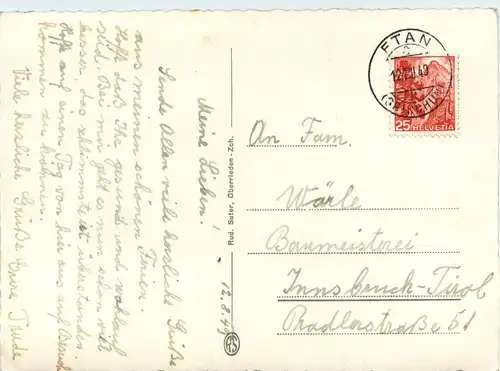 12.8.49
Meine Lieben!
Sende Allen viele herzliche Grüße
aus meinen schönen Ferien.
Hoffe daß Ihr gesund und wohlauf
seid. Bei mir geht es nun schon viel
besser, das schlimmste ist überstanden.
Hoffe auf einen Tag von hier aus auf Besuch
kommen zu können.
Viele herzliche Grüße Eure Trude
Rud. Suter, Oberrieden-Zch.
FTAN
25 HELVETIA
An Fam.
Wärle
Baumeisterei
Innsbruck-Tirol
Pradlerstraße 51